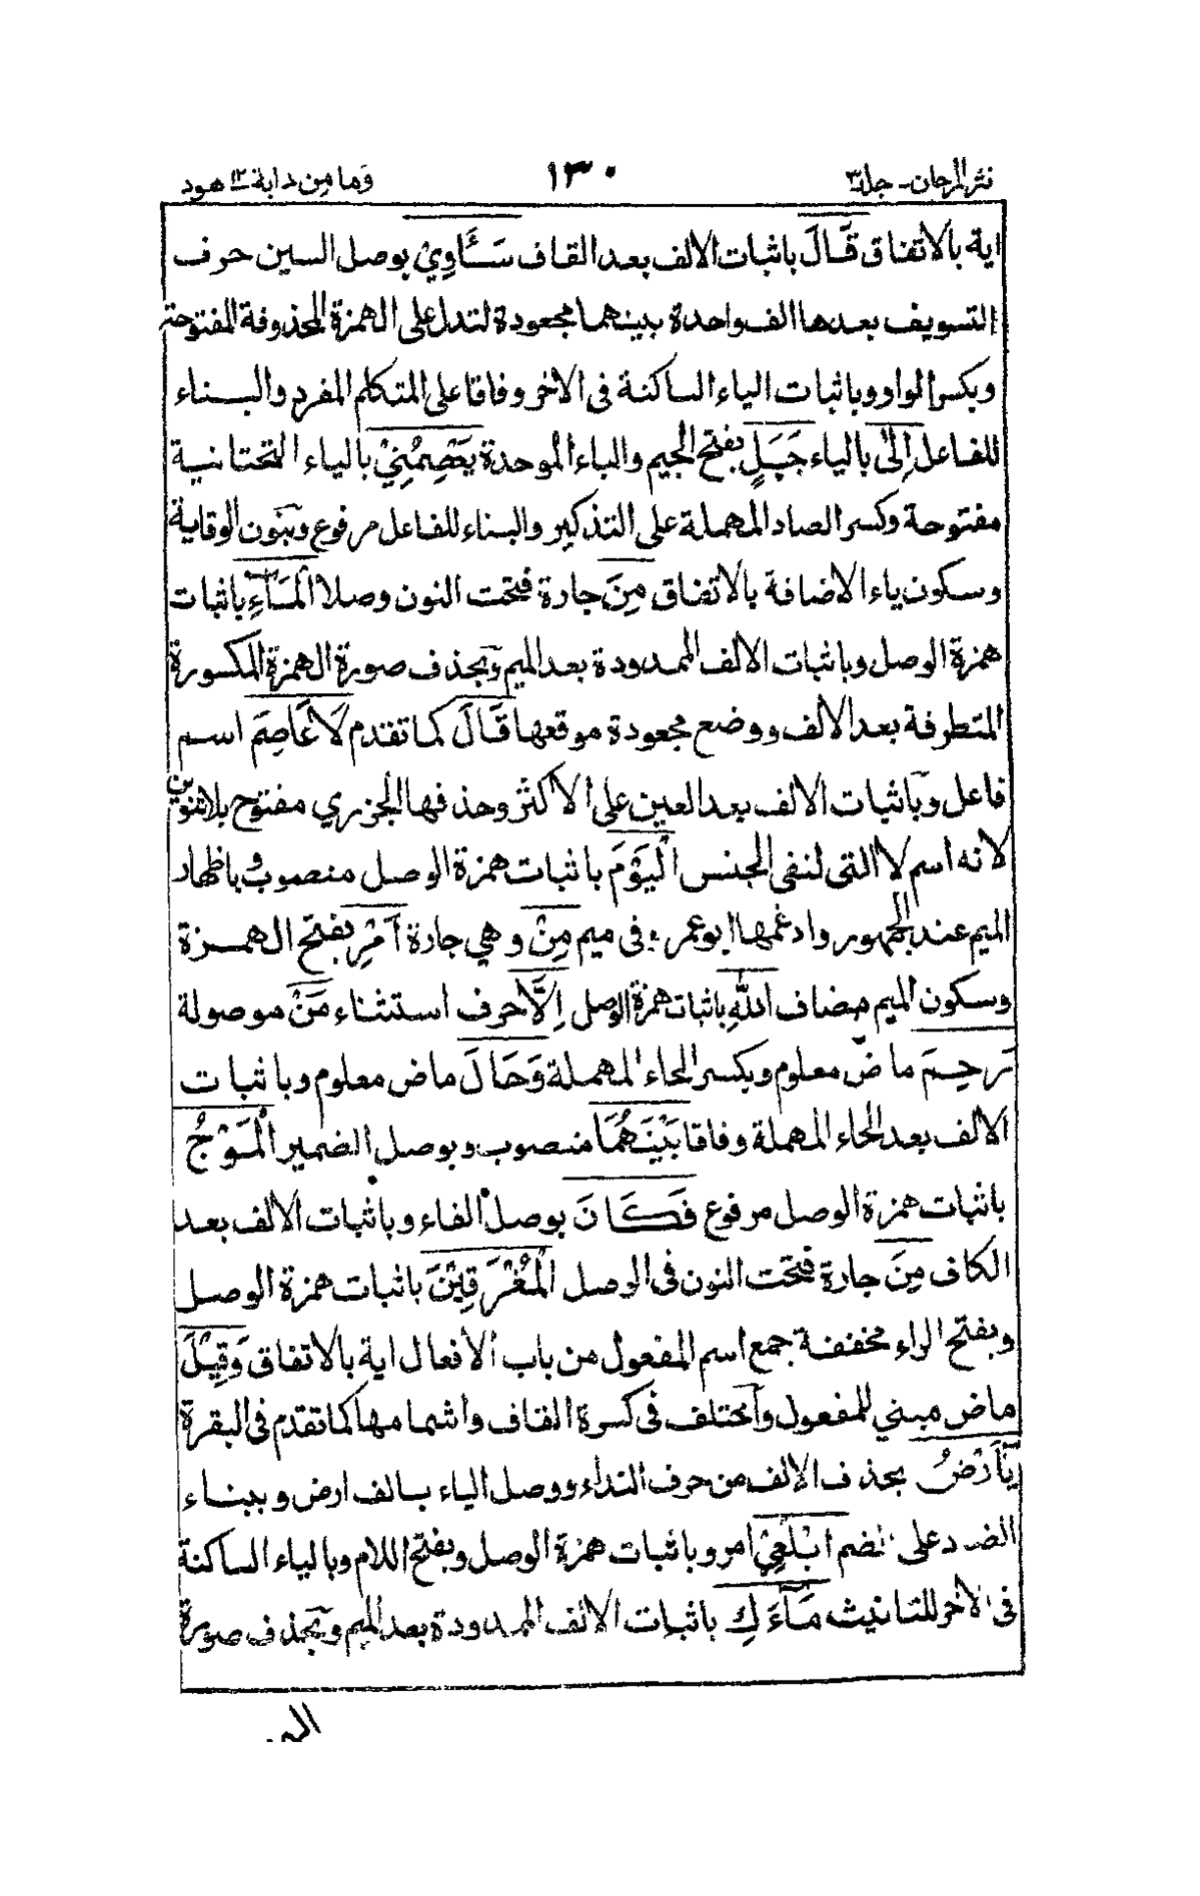 نثر المرجان - جلد ٣
١٣٠
وَما مِن دابة ١٢ هود
اية بالاتفاق قَالَ باثبات الالف بعد القاف سَـَٔاوِيْ بوصل السين حرف
التسويف بعدها الف واحدة بينهما مجعودة لتدل على الهمزة المحذوفة المفتوحة
وبكسر الواو وباثبات الياء الساكنة فى الاخر وفاقا على المتكلم المفرد والبناء
للفاعل اِلىٰ بالياء جَبَلٍ بفتح الجيم والباء الموحدة يَعْصِمُنِيْ بالياء التحتانية
مفتوحة وكسر الصاد المهملة على التذكير والبناء للفاعل مرفوع وبنون الوقاية
وسكون ياء الاضافة بالاتفاق مِنَ جارة فتحت النون وصلا الْمَآءِ باثبات
همزة الوصل وباثبات الالف الممدودة بعد الميم وبحذف صورة الهمزة المكسورة
المتطرفة بعد الالف ووضع مجعودة موقعها قَالَ كما تقدم لَاعَاصِمَ اسم
فاعل وباثبات الالف بعد العين على الاكثر وحذفها الجزري مفتوح بلا تنوين
لانه اسم لا التى لنفى الجنس الْيَوْمَ باثبات همزة الوصل منصوب وباظهار
الميم عند الجمهور وادغمها ابو عمرو فى ميم مِنْ وهي جارة اَمْرِ بفتح الهمزة
وسكون الميم مضاف اللّٰهِ باثبات همزة الوصل اِلَّا حرف استثناء مَنْ موصولة
رَحِمَ ماض معلوم وبكسر الحاء المهملة وَحَالَ ماض معلوم وباثبات
الالف بعد الحاء المهملة وفاقا بَيْنَهُمَا منصوب وبوصل الضمير الْمَوْجُ
باثبات همزة الوصل مرفوع فَكَانَ بوصل الفاء وباثبات الالف بعد
الكاف مِنَ جارة فتحت النون فى الوصل الْمُغْرَقِيْنَ باثبات همزة الوصل
وبفتح الراء مخففة جمع اسم المفعول من باب الافعال اية بالاتفاق وَقِيْلَ
ماض مبني للمفعول واختلف فى كسرة القاف واشمامها كما تقدم فى البقرة
يٰٓاَرْضُ بحذف الالف من حرف النداء ووصل الياء بالف ارض وببناء
الضاد على الضم ابْلَعِيْ امر وباثبات همزة الوصل وبفتح اللام وبالياء الساكنة
فى الاخر للتانيث مَآءَكِ باثبات الالف الممدودة بعد الميم وبحذف صورة